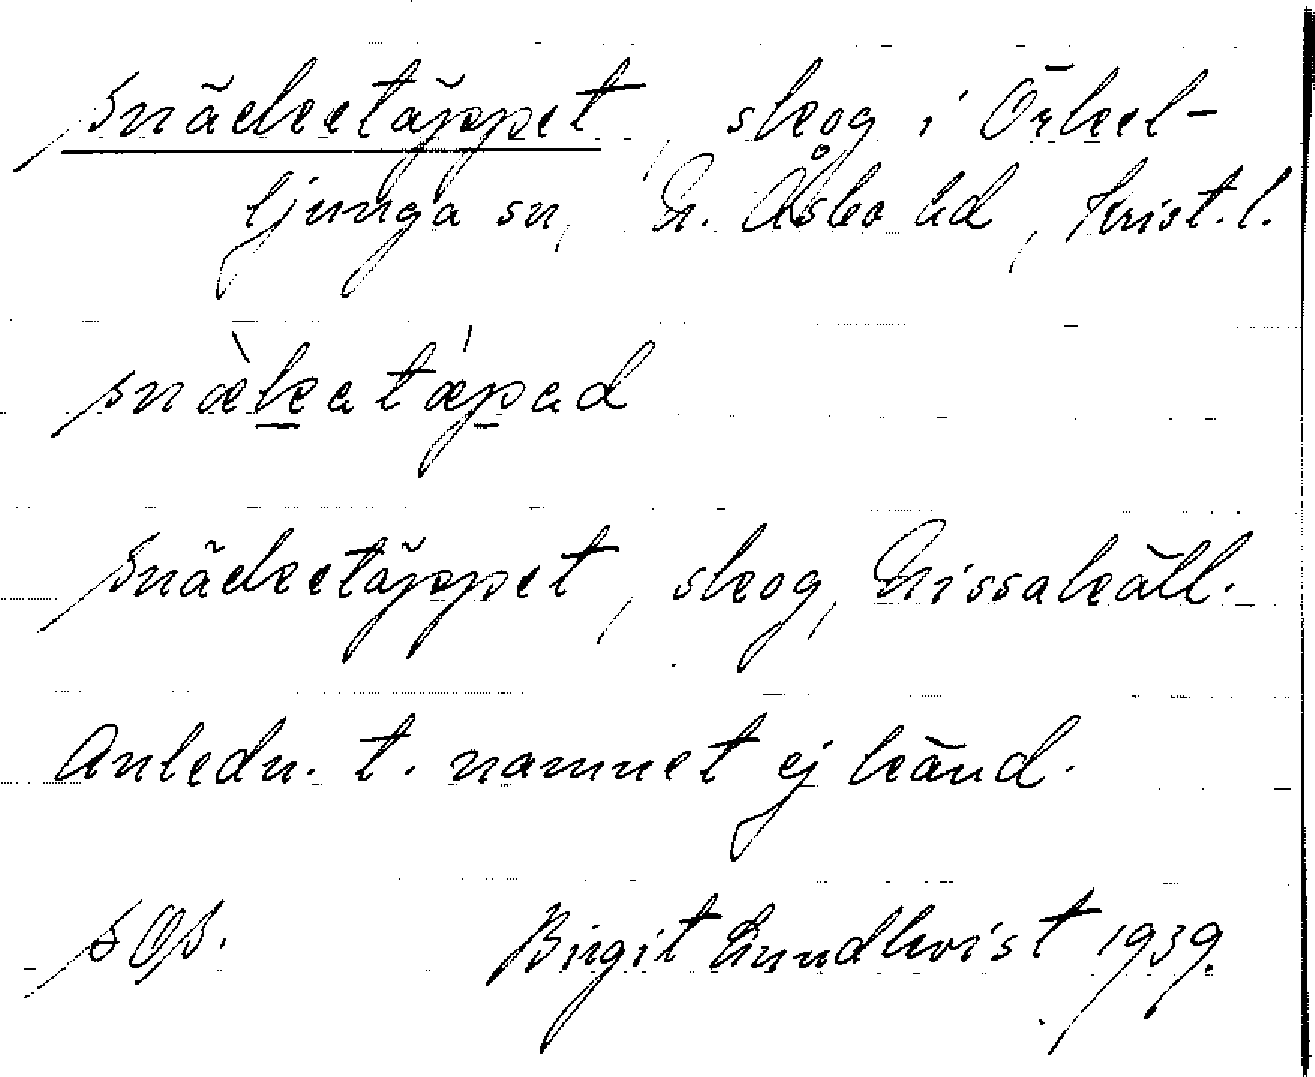 Snäcketäppet, skog i Örkel-
ljunga sn, N. Åsbo hd, Krist. l.
snæ̀katǽpad
Snäcketäppet, skog, Nissakäll.
Anledn. t. namnet ej känd.
SOs. Birgit Lundkvist 1939.